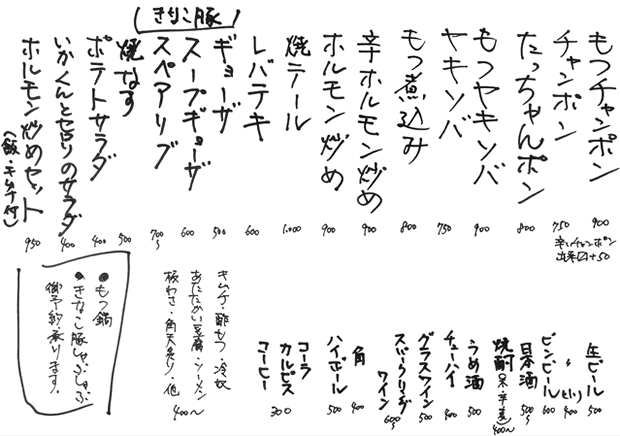 もつチャンポン 900
チャンポン 750
辛いチャンポン
出来ます+50
たっちゃんポン 800
もつヤキソバ 900
ヤキソバ 750
もつ煮込み 800
辛ホルモン炒め 900
ホルモン炒め 900
焼テール 1,000
レバテキ 600
きなこ豚
ギョーザ 500
スープギョーザ 600
スペアリブ 700〜
焼なす 500
ポテトサラダ 400
いかくんとセロリのサラダ 400
ホルモン炒めセット 950
(飯・キムチ付)
生ビール 500
〃 (小) 400
ビンビール 600
日本酒 500〜
焼酎 400〜
うめ酒 500
チューハイ 400
グラスワイン 500
スパークリングワイン 600〜
角 400
ハイボール 500
コーラ
カルピス 300
コーヒー
キムチ・酢もつ・冷奴
あたたかい豆腐・ソーメン
板わさ・角天炙り・他
400〜
●もつ鍋
●きなこ豚しゃぶしゃぶ
御予約承ります。